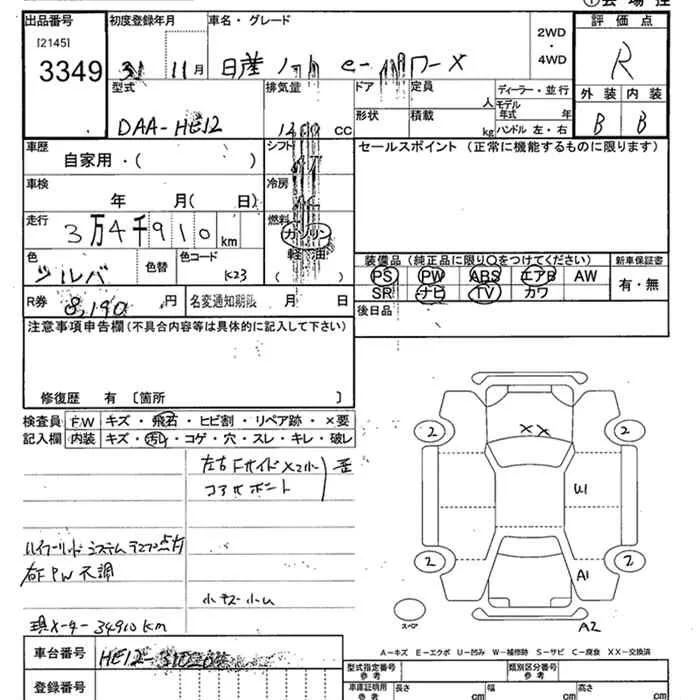 出品番号
[2145]
3349
初度登録年月
31 11月
車名・グレード
日産 ノート e-パワーX
2WD
・
4WD
評価点
R
外装 内装
B B
型式
DAA-HE12
排気量
cc
ドア
形状
定員
人
積載
kg
ディーラー・並行
モデル
年式 年
ハンドル 左・右
車歴
自家用・( )
シフト
冷房
燃料
ガソリン
軽油
( )
セールスポイント (正常に機能するものに限ります)
車検
年 月( 日)
走行
3万4千910km
色
シルバ
色替
色コード
K23
R券
8,190円
名変通知期限 月 日
装備品(純正品に限り○をつけてください)
新車保証書
PS PW ABS エアB AW
SR ナビ TV カワ
有・無
後日品
注意事項申告欄(不具合内容等は具体的に記入して下さい)
修復歴 有 〔箇所 〕
検査員
記入欄
F.W キズ・飛石・ヒビ割・リペア跡・×要
内装 キズ・汚れ・コゲ・穴・スレ・キレ・破レ
左右Fサイド
コアサポート
歪
ハイブリッドシステムランプ点灯
右F PW 不調
小キズ小凹
現メーター 34910km
2
2
2
2
XX
U1
A1
A2
スペア
車台番号
HE12-
登録番号
A−キズ E−エクボ U−凹み W−補修跡 S−サビ C−腐食 XX−交換済
型式指定番号
参考
類別区分番号
参考
車庫証明用
参考
長さ cm
幅 cm
高さ cm